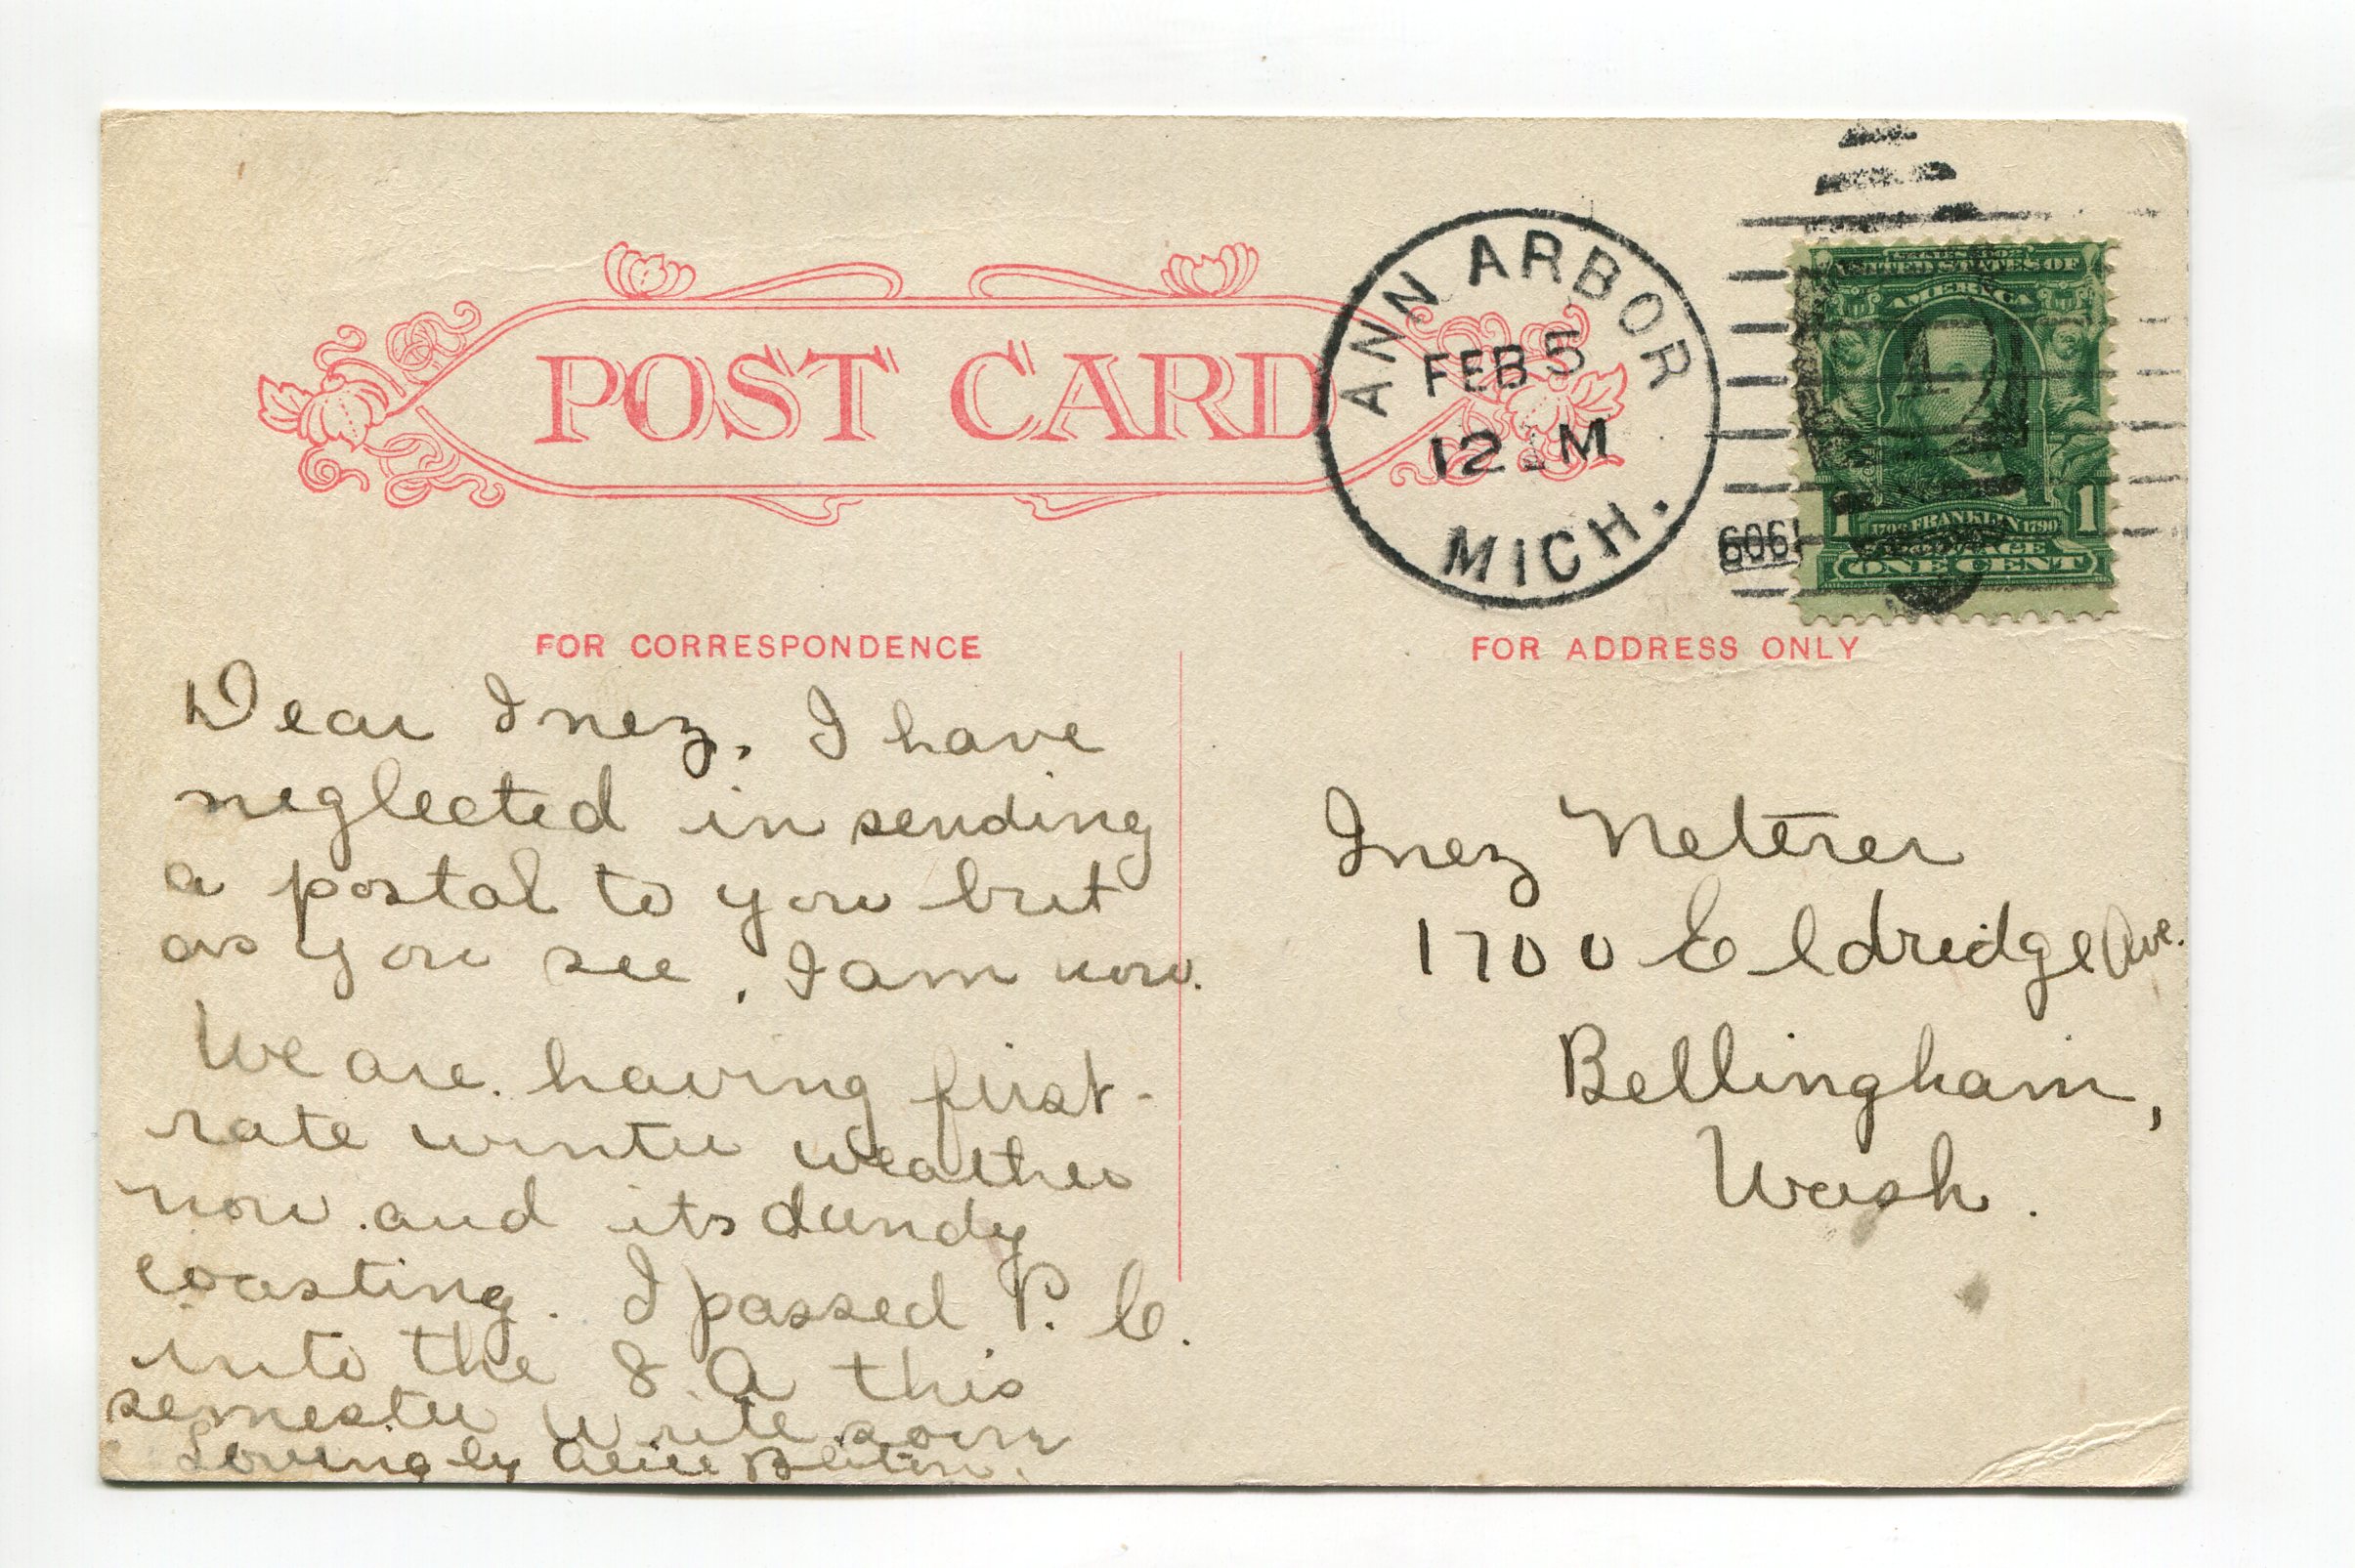 POST CARD
ANN ARBOR
FEB 5
12 M
MICH.
1909
UNITED STATES OF
AMERICA
1 1706 FRANKLIN 1790 1
POSTAGE
ONE CENT
FOR CORRESPONDENCE
Dear Inez, I have
neglected in sending
a postal to you but
as you see, I am now.
We are having first-
rate winter weather
now and its dandy
coasting. I passed P. C.
into the 8 A this
semester Write soon
Lovingly Alice
FOR ADDRESS ONLY
Inez Neterer
1700 Eldridge Ave.
Bellingham,
Wash.